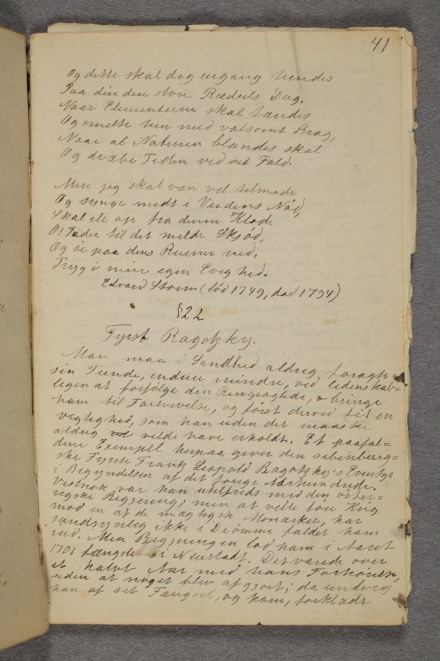 41
Og dette skal dog engang hendes
Paa din den store Rædsels Dag.
Naar Elementerne skal tændes
Og smelte hen med voldsomt Brag,
Naar al Naturen blandes skal
Og dræbe Tiden ved sit Fald.
Men jeg skal være vel tilmode
Og synge midt i Verdens Nød,
Skal ile op fra denne Klode
O! Fader til det milde Skjød,
Og se paa dens Ruiner ned,
Tryg i min egen Evighed.
Edvard Storm (fød 1749, død 1794)
§22
Fyrst Ragotzky.
Man maa i Sandhed aldrig foragte
sin Fiende, endnu mindre, ved lidenskab-
legen at forfølge den Ringeagtede, bringe
ham til Fortvivelse, og først derved til en
vegtighed, som han uden det maaske
aldrig vilde have erholdt. Et paafal-
dene Exempel herpaa giver den siebenbürg-
ske Fyrste Frantz Leopold Ragotzky's Eventyr
i Begyndelsen af det forrige Aarhundrede.
Vistnok var han utilfreds med den øster-
rigske Regjering; men at ville føre Krig
mod en af de mægtigste Monarker, har
sandsynleg ikke i Drømme faldet ham
ind. Men Regjeringen lod ham i Aaret
1701 fængsle i Neustadt. Det varede over
et halvt Aar med hans Forhører,
uden at noget blev afgjort; da undveg
han af sit Fængsel, og kom, forklædt